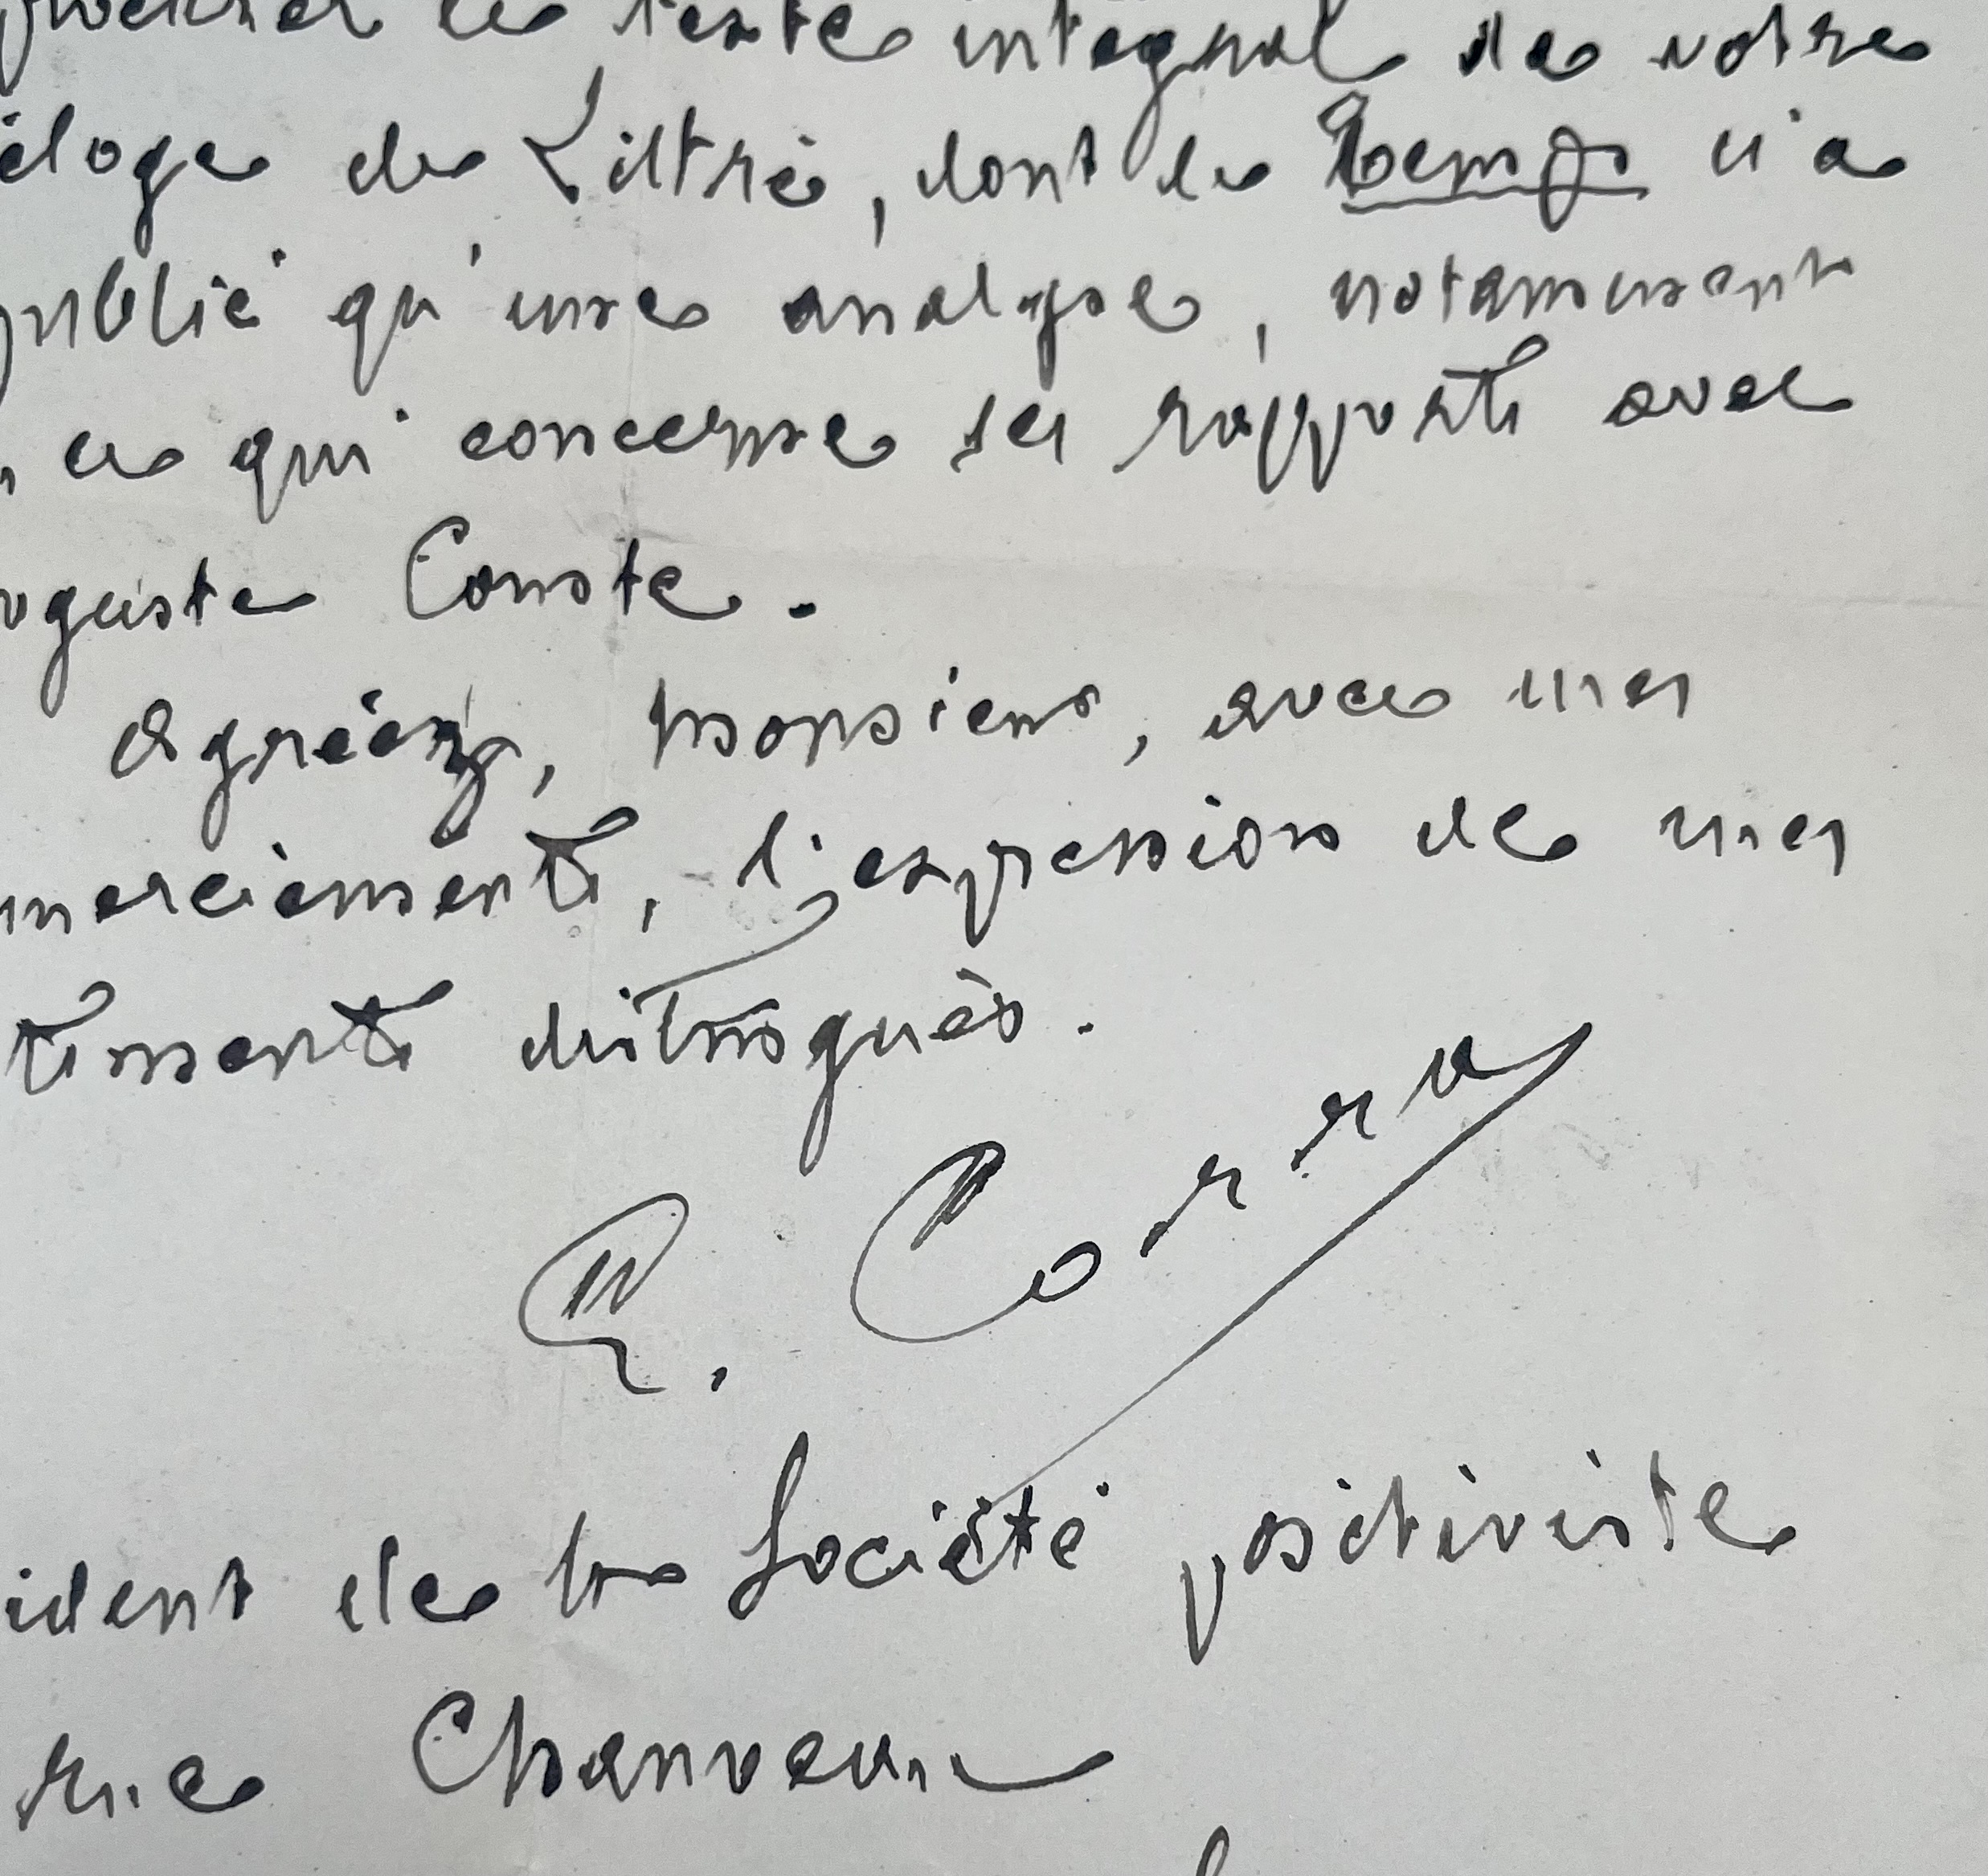 procurer le texte intégral de votre
éloge de Littré, dont le Temps n'a
publié qu'une analyse, notamment
ce qui concerne ses rapports avec
uguste Comte.
Agréez, Monsieur, avec mes
merciements, l'expression de mes
timents distingués.
E. Corra
ident de la Société positiviste
rue